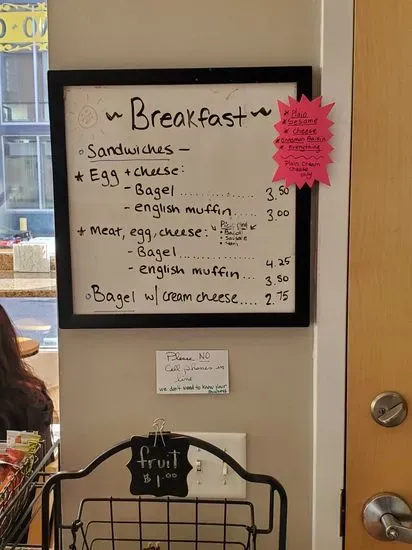 ~ Breakfast ~
Sandwiches -
* Egg + cheese:
- Bagel .............. 3.50
- english muffin ... 3.00
* Meat, egg, cheese:
• Bacon
• Sausage
• Ham
- Bagel .............. 4.25
- english muffin ... 3.50
Bagel w/ cream cheese.... 2.75
* Plain
* Sesame
* Cheese
* Cinnamon Raisin
* Everything
Plain cream
cheese
only
Please NO
Cell phones in
line
we don't need to know your
business
fruit
$1.00